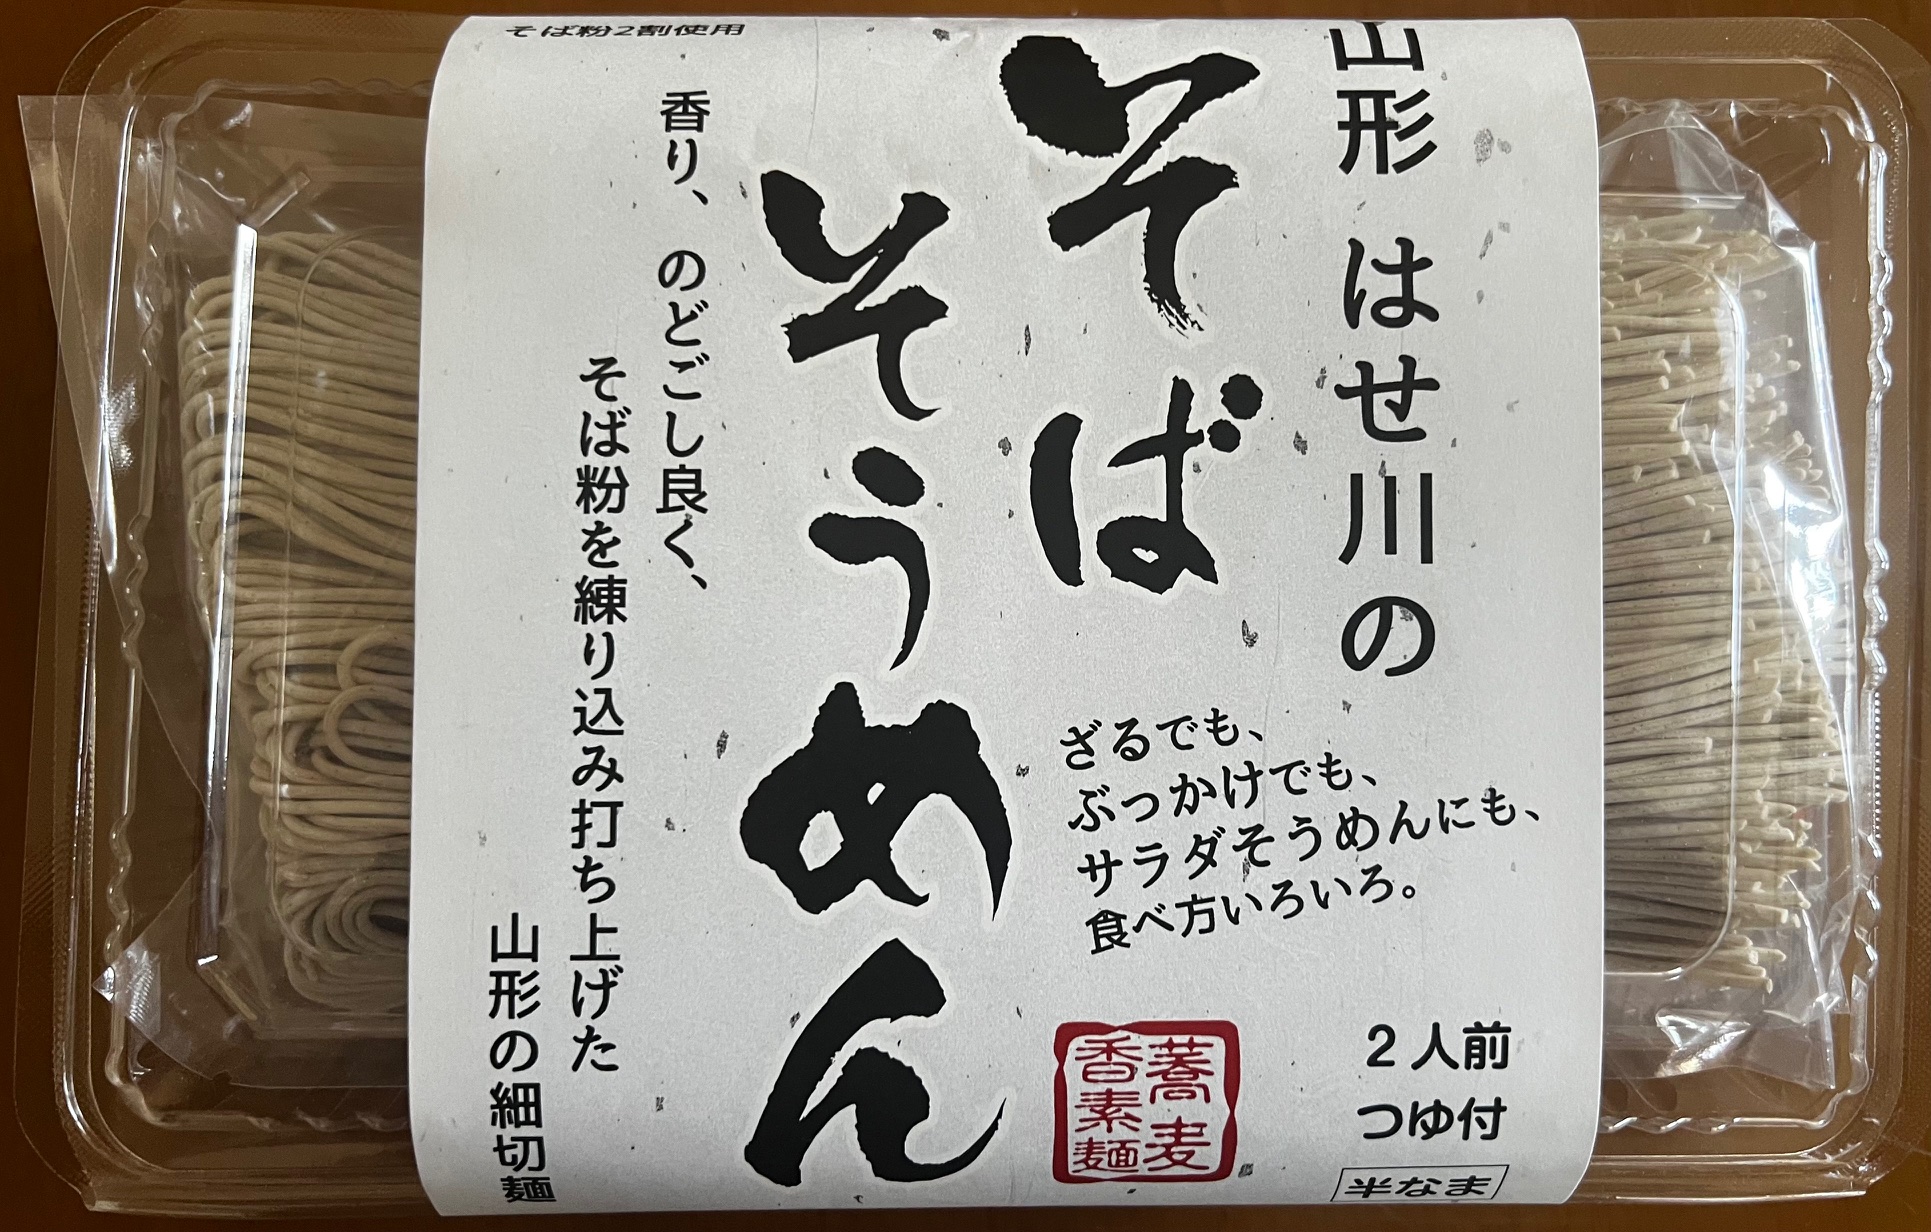 山形 はせ川の
そば
そうめん
ざるでも、
ぶっかけでも、
サラダそうめんにも、
食べ方いろいろ。
2人前
つゆ付
半なま
蕎麦
香素麺
香り、のどごし良く、
そば粉を練り込み打ち上げた
山形の細切麺
そば粉2割使用